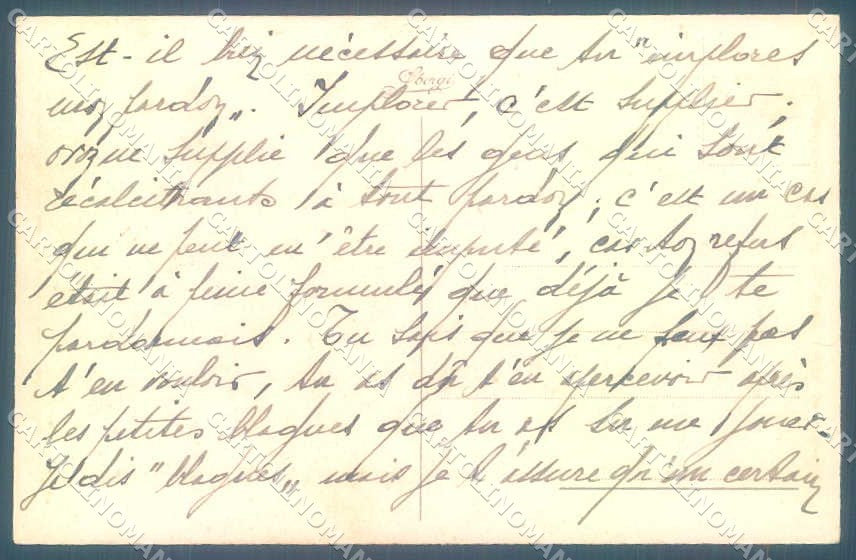 Est-il bien nécessaire que tu "implores
mon pardon". Implorer, c'est supplier.
or on ne supplie que les gens qui sont
récalcitrants à tout pardon, c'est un cas
qui ne peut m'être imputé, car ton refus
était à peine formulé que déjà je te
pardonnais. Tu sais que je ne peux pas
t'en vouloir, tu as dû t'en apercevoir après
les petites blagues que tu as su me jouer.
Je dis "blagues" mais je t'assure qu'un certain
CARTOLINOMANIA